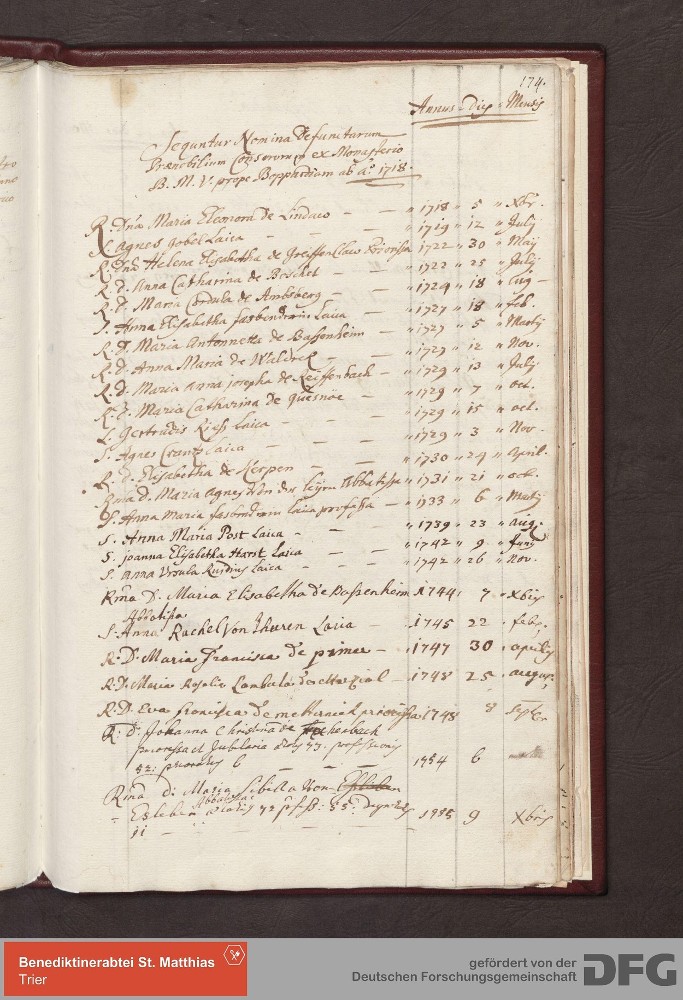 174.
Annus - Dies - Mensis
Sequntur Nomina Defunctarum
Praenobilium Consororum ex Monasterio
B. M. V. prope Bopphardiam ab aō 1718.
R. Dna Maria Eleonora de Lindaw — — " 1718 " 5 " Xbr.
S. Agnes Gobel Laica — — " 1719 " 12 " Julij
R. Dna Helena Elisabetha de Greiffenclaw Priorissa 1722 " 30 " Maij
R. D. Anna Catharina de — — " 1722 " 25 " Julij
R. D. Maria Cordula de — " 1724 " 18 " Aug
S. Anna Elisabetha Laica — " 1727 " 18 " feb.
R. D. Maria Antonnetta de Bassenheim — " 1727 " 5 " Martij
R. D. Anna Maria de — — " 1727 " 12 " Nov.
R. D. Maria Anna Josepha de Reiffenbach — " 1729 " 13 " Julij
R. D. Maria Catharina de Quesnoe — — " 1729 " 7 " oct.
S. Gertrudis Laica — — — " 1729 " 15 " oct.
S. Agnes Crantz Laica — — — " 1729 " 3 " Nov.
R. D. Elisabetha de Kerpen — — " 1730 " 24 " April.
Rma D. Maria Agnes Von der Leyen Abbatissa " 1731 " 21 " oct.
S. Anna Maria laica professa — " 1733 " 6 " Martij
S. Anna Maria Post Laica — — " 1739 " 23 " aug.
S. Joanna Elisabetha Harst Laica — — " 1742 " 9 " Junij
S. Anna Ursula Laica — — " 1742 " 26 " Nov.
Rma D. Maria Elisabetha de Bassenheim 1744 7 Xbris
Abbatissa
S. Anna Rachel Von Thuren Laica — 1745 22 febr.
R. D. Maria Francisca de — 1747 30 aprilis
R. D. Maria Rosalie — 1748 25 august
R. D. Eva francisca de metternich priorissa 1748 8 septer
R. D. Johanna Christina de
priorissa et Jubilaria aetatis 77. professionis
52. prioratus 6 — — — 1754 6
Rma D. Maria Sibilla Von
Esleben Abbatissa aetatis 72 prof. 55.
11 — — — 1755 9 Xbris
Benediktinerabtei St. Matthias
Trier
gefördert von der
Deutschen Forschungsgemeinschaft
DFG